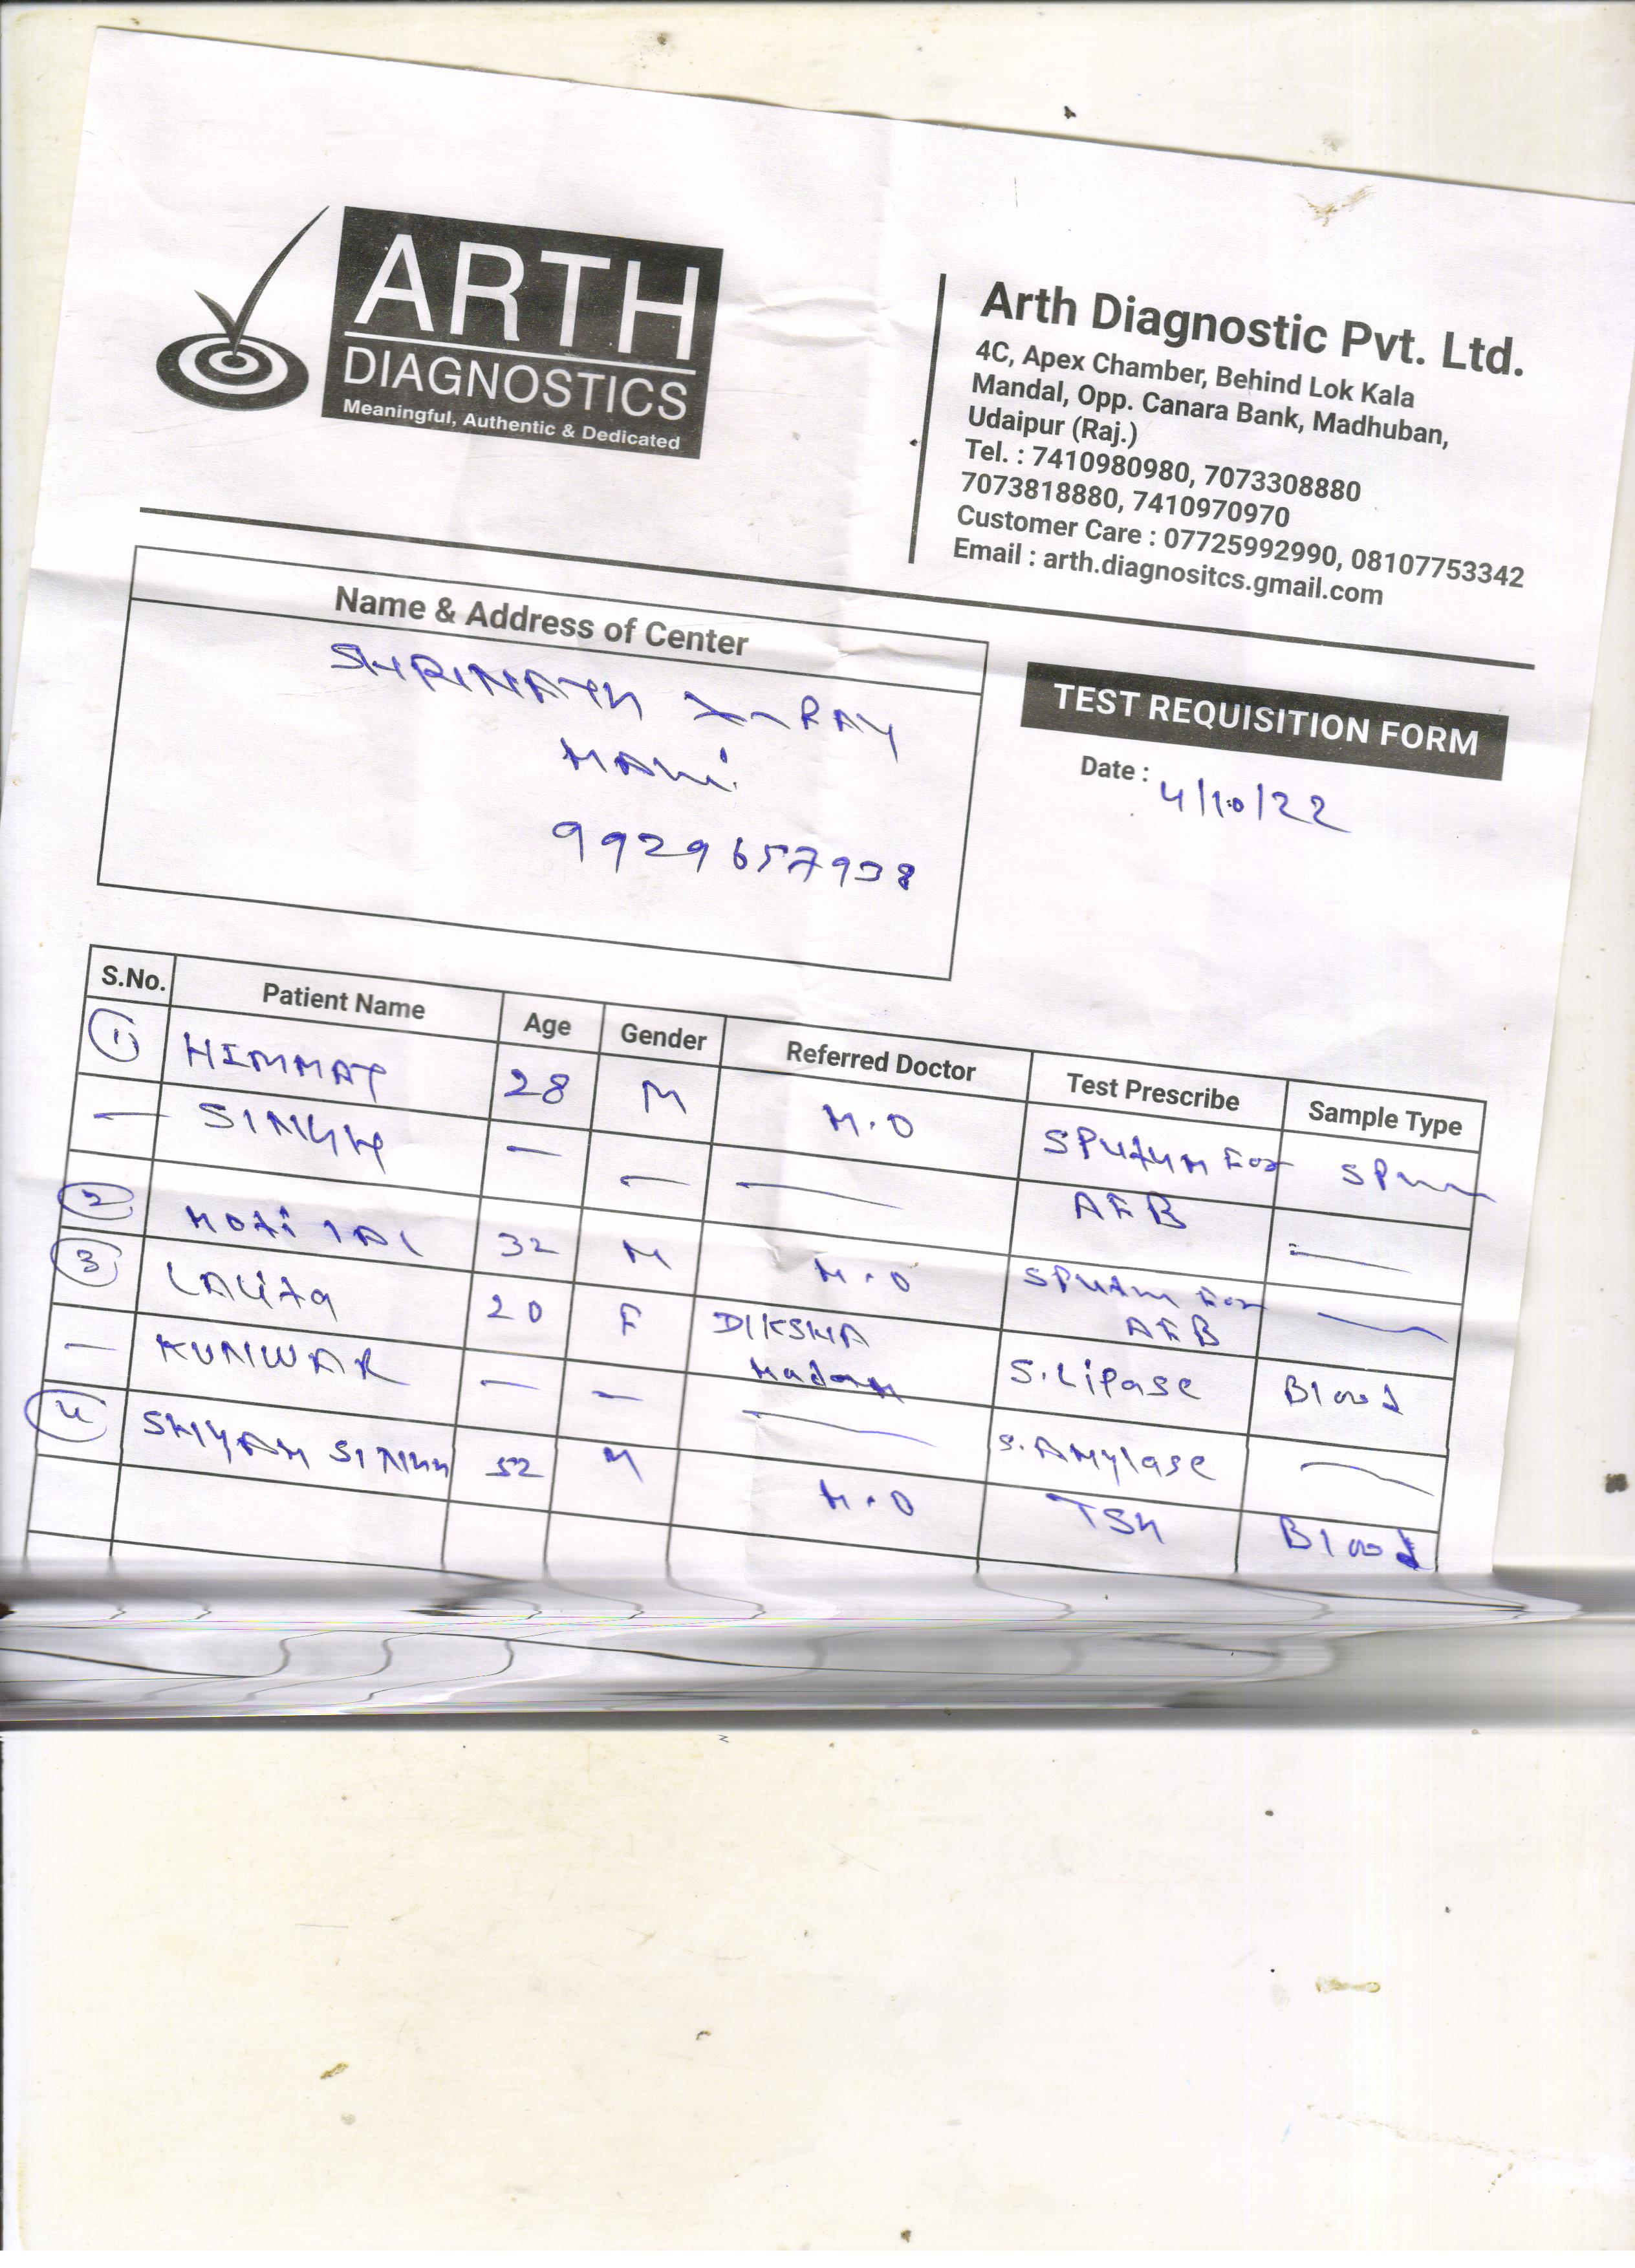 ARTH
DIAGNOSTICS
Meaningful, Authentic & Dedicated
Arth Diagnostic Pvt. Ltd.
4C, Apex Chamber, Behind Lok Kala
Mandal, Opp. Canara Bank, Madhuban,
Udaipur (Raj.)
Tel. : 7410980980, 7073308880
7073818880, 7410970970
Customer Care : 07725992990, 08107753342
Email : arth.diagnositcs.gmail.com
Name & Address of Center
SHRINATH X-RAY
9929657938
TEST REQUISITION FORM
Date : 4/10/22
S.No. Patient Name Age Gender Referred Doctor Test Prescribe Sample Type
1 HIMMAT 28 M M.O SPUTUM For
— SINGH — — — AFB —
2 MOTI LAL 32 M M.O SPUTUM For AFB —
3 LALITA 20 F DIKSHA Madam S.Lipase Blood
— KUNWAR — — — S.AMYlase —
4 SHYAM SINGH 52 M M.O TSH Blood